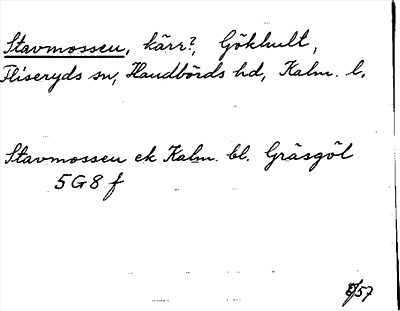 Stavmossen, kärr?, Gökhult,
Fliseryds sn, Handbörds hd, Kalm. l.
Stavmossen ek Kalm. bl. Gräsgöl
5G8f
/57